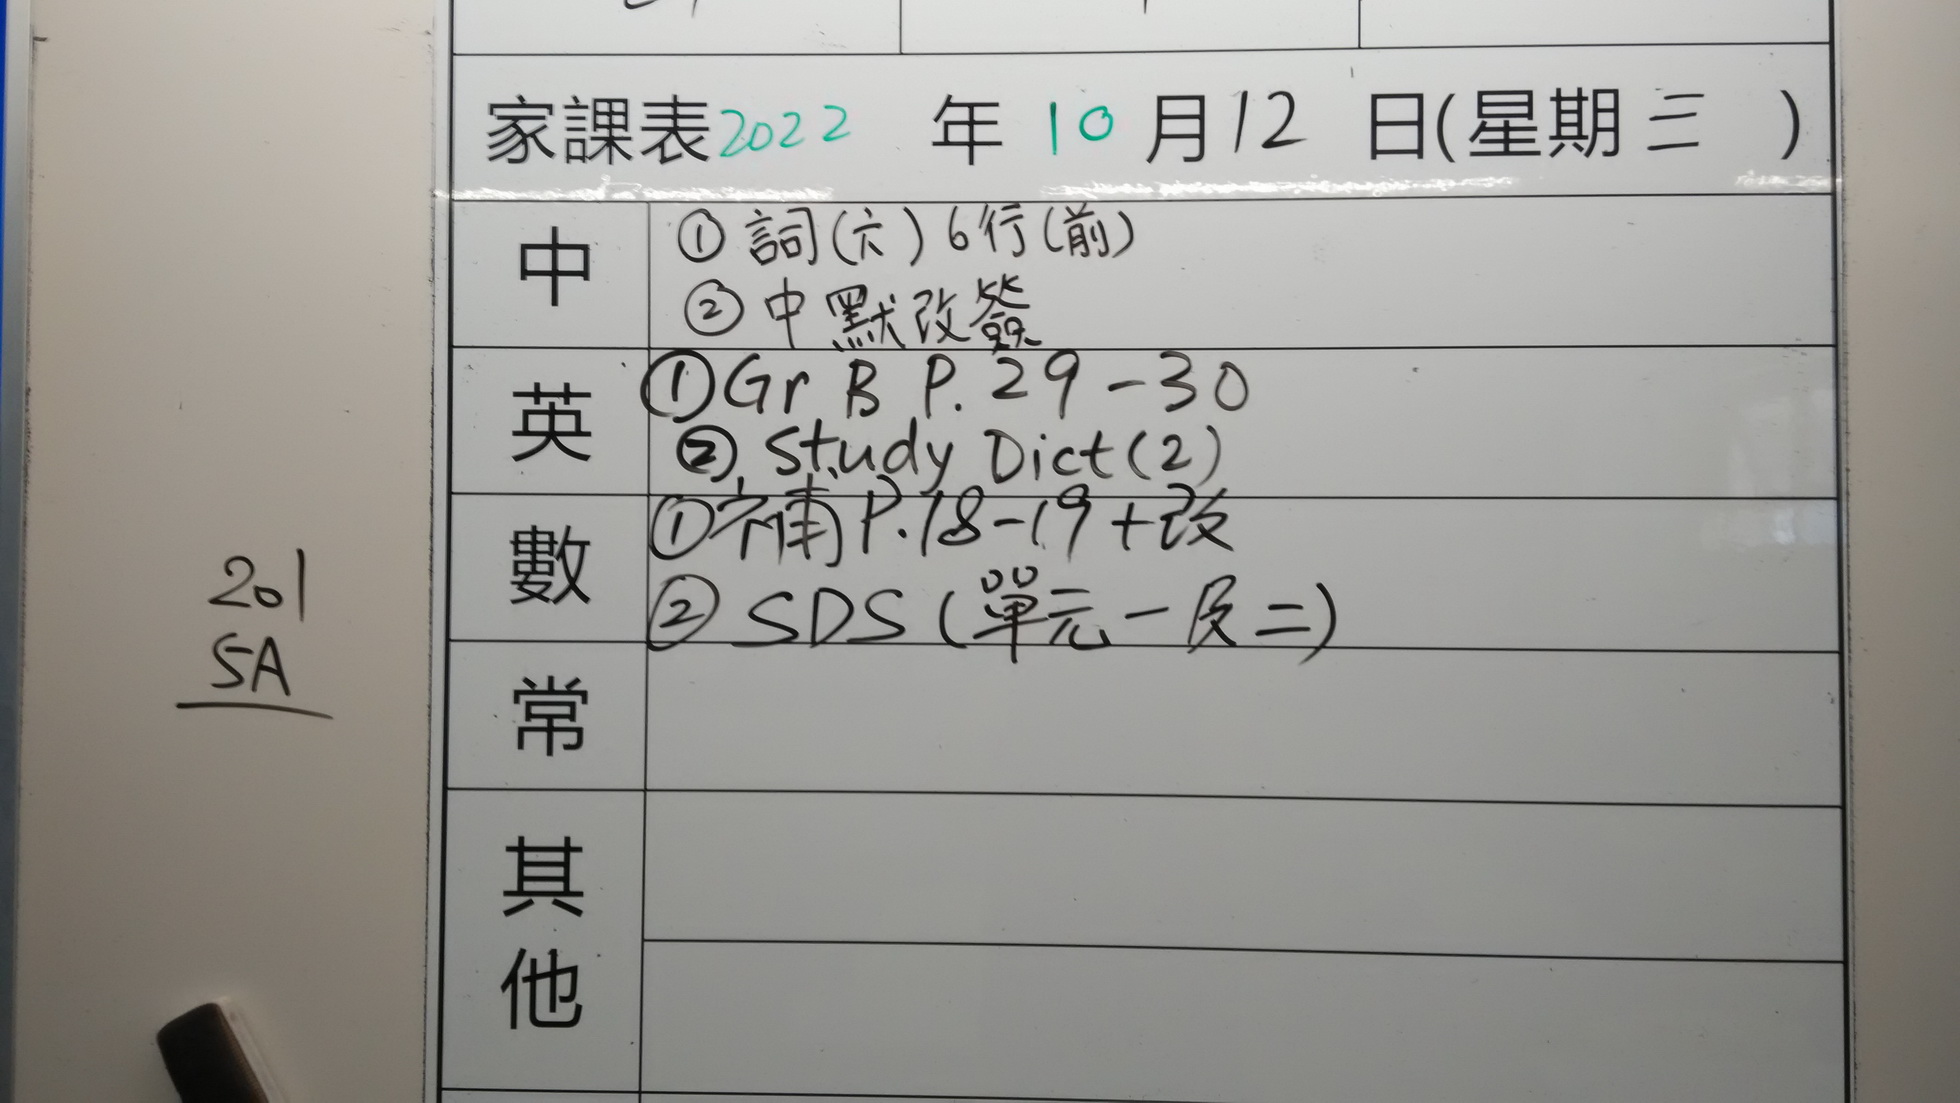 家課表2022 年 10 月 12 日(星期三 )
中
① 詞(六) 6行(前)
② 中默改簽
英
① Gr B P. 29-30
② Study Dict (2)
數
① 補 P.18-19+改
② SDS (單元一及二)
常
其他
201
5A